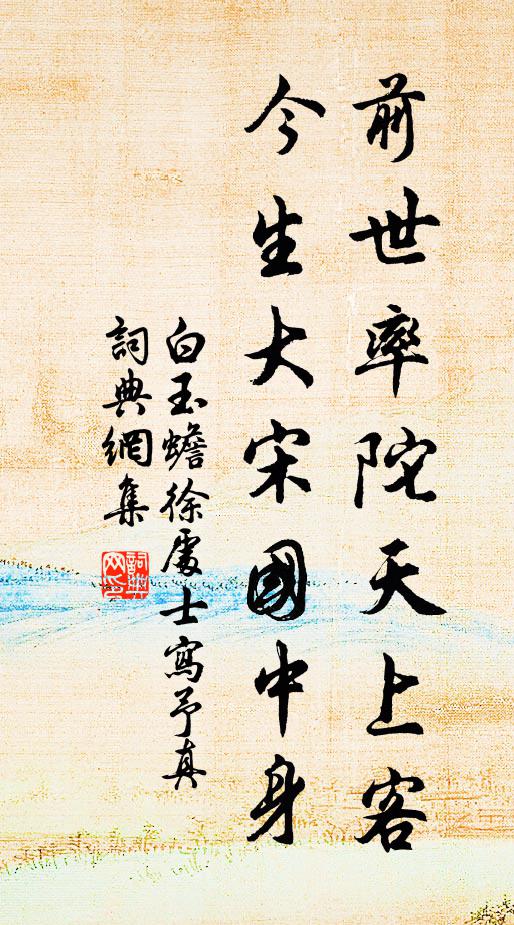 前世率陀天上客
今生大宋國中身
白玉蟾徐處士寫予真
詞典網集